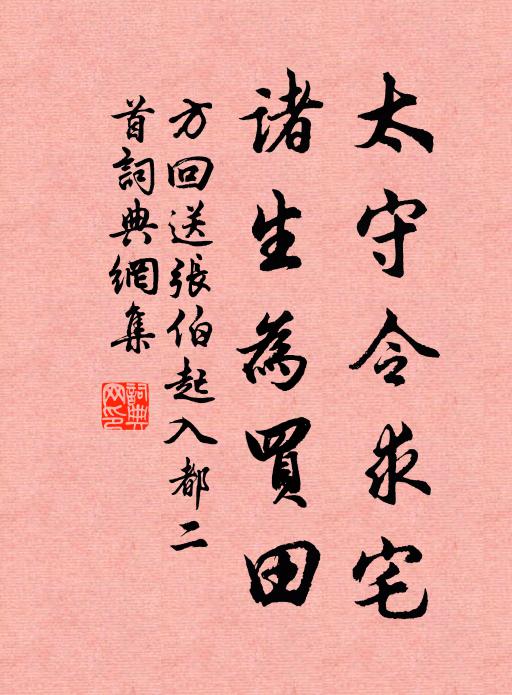 太守令求宅
諸生為買田
方回送張伯起入都二
首詞典網集
詞典
网印